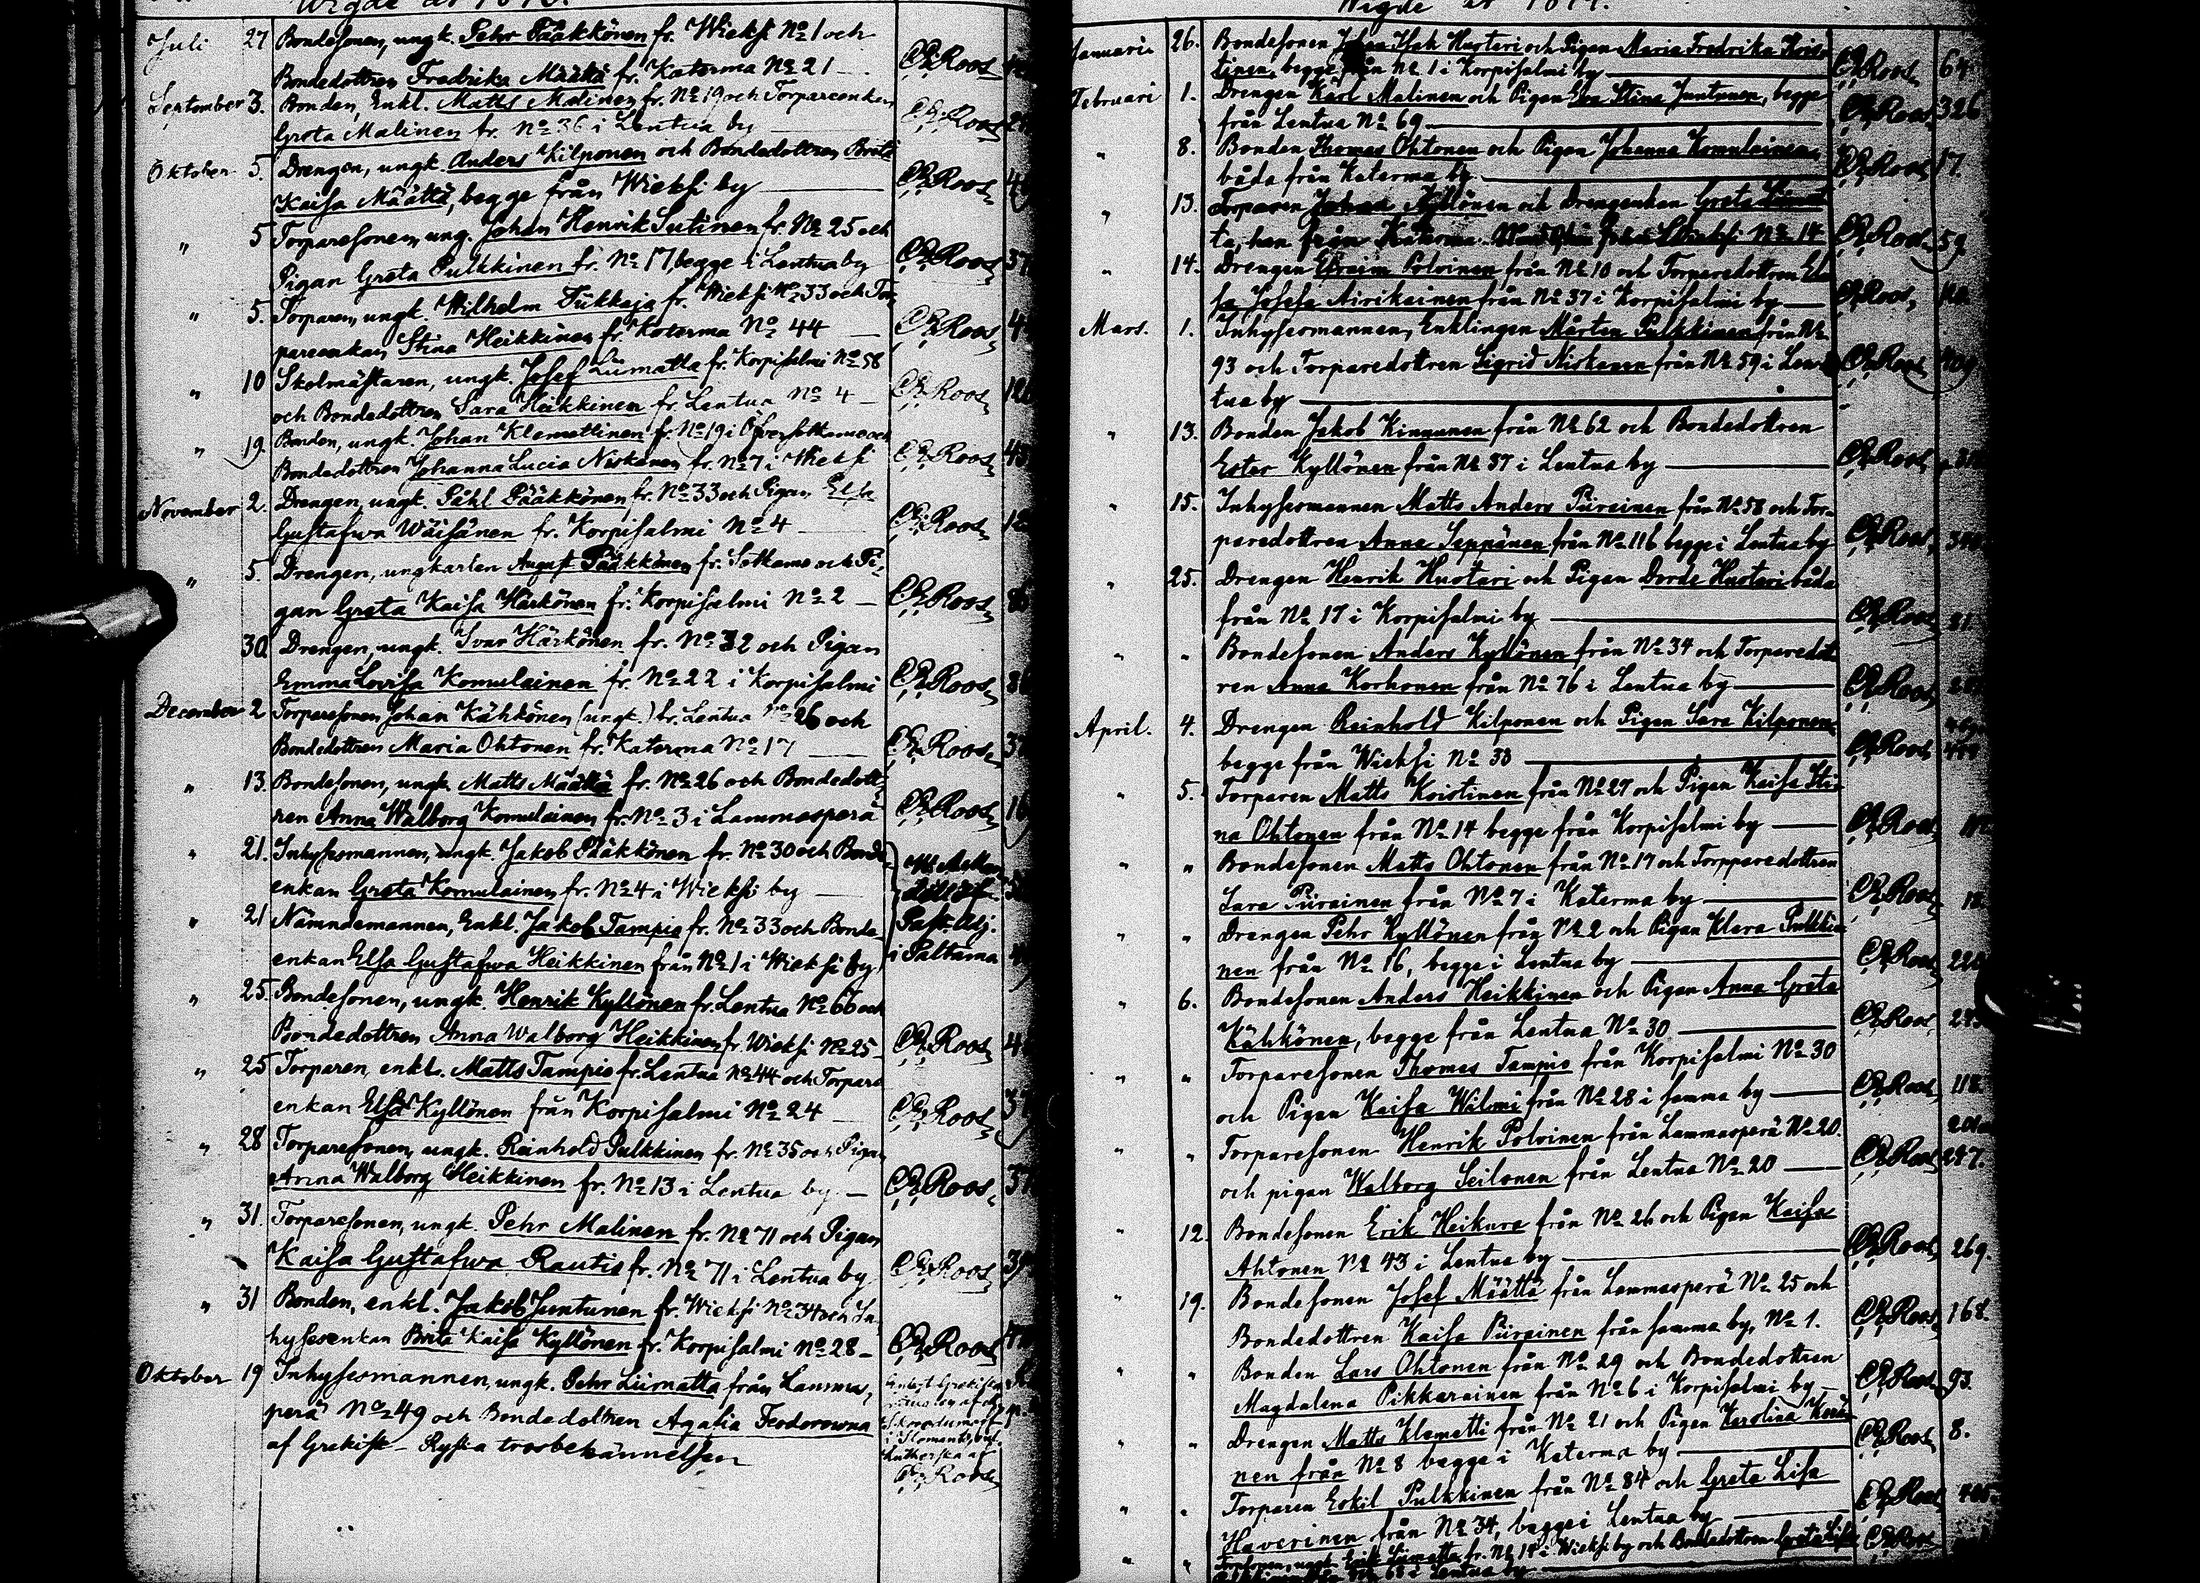 Juli 27 Bondesonen, ungk. Pehr Pääkkönen fr. Wieksi No 1 och
Bondedottren Fredrika Määttä fr. Katerma No 21 CRRoos
September 3. Bonden, Enkl. Matts Malinen fr. No 19 och Torpareenkan
Greta Malinen fr. No 36 i Lentua by CRRoos
Oktober 5. Drengen, ungk. Anders Kilponen och Bondedottren Brita
Kaisa Määttä, begge från Wieksi by CRRoos
" 5 Torparesonen, ung. Johan Henrik Sutinen fr. No 25 och
Pigan Greta Pulkkinen fr. No 17, begge i Lentua by CRRoos
" 5. Torparen, ungk. Wilhelm Tukkaja fr. Wieksi No 33 och Tor
pareenkan Stina Heikkinen fr. Katerma No 44 CRRoos
" 10 Skolmästaren, ungk. Josef Liimatta fr. Korpisalmi No 58
och Bondedottren Sara Heikkinen fr. Lentua No 4 CRRoos
" 19. Bonden, ungk. Johan Klemettinen fr. No 19 i Öfversotkamo och
Bondedottren Johanna Lucia Niskanen fr. No 7 i Wieksi CRRoos
November 2. Drengen, ungk. Påhl Pääkkönen fr. No 33 och Pigan Elsa
Gustafwa Wäisänen fr. Korpisalmi No 4 CRRoos
" 5. Drengen, ungkarlen August Pääkkönen fr. Sotkamo och Pi-
gan Greta Kaisa Härkönen fr. Korpisalmi No 2 CRRoos
30 Drengen, ungk. Ivar Härkönen fr. No 32 och Pigan
Emma Lovisa Komulainen fr. No 22 i Korpisalmi CRRoos
December 2 Torparesonen Johan Kähkönen (ungk.) fr. Lentua No 26 och
Bondedottren Maria Ohtonen fr. Katerma No 17 CRRoos
" 13. Bondesonen, ungk. Matts Määttä fr. No 26 och Bondedott-
ren Anna Walborg Komulainen fr. No 3 i Lammasperä CRRoos
" 21. Inhysesmannen, ungk. Jakob Pääkkönen fr. No 30 och Bonde-
enkan Greta Komulainen fr. No 4 i Wieksi by
" 21 Nämndemannen, Enkl. Jakob Tampio fr. No 33 och Bonde- Past. Adj.
enkan Elsa Gustafwa Heikkinen från No 1 i Wieksi by i Paltamo
" 25. Bondesonen, ungk. Henrik Kyllönen fr. Lentua No 66 och
Bondedottren Anna Walborg Heikkinen fr. Wieksi No 25 CRRoos
" 25 Torparen, enkl. Matts Tampio fr. Lentua No 44 och Torpare
enkan Elsa Kyllönen från Korpisalmi No 24 CRRoos
" 28 Torparesonen, ungk. Reinhold Pulkkinen fr. No 35 och Pigan
Anna Walborg Heikkinen fr. No 13 i Lentua by CRRoos
" 31. Torparesonen, ungk. Pehr Malinen fr. No 71 och Pigan
Kaisa Gustafwa Rautio fr. No 71 i Lentua by CRRoos
" 31 Bonden, enkl. Jakob Juntunen fr. Wieksi No 34 och In-
hysesenkan Brita Kaisa Kyllönen fr. Korpisalmi No 28 CRRoos
Oktober 19 Inhysesmannen, ungk. Pehr Liimatta från Lammas-
perä No 49 och Bondedottren Agafia Feodorowna
af Grekisk-Ryska trosbekännelsen CRRoos
Wigde år
Januari 26. Bondesonen Johan Isak Huotari och Pigan Maria Fredrika Kris-
tinen, begge från No 1 i Korpisalmi by CRRoos 64
Februari 1. Drengen Karl Malinen och Pigan Eva Stina Juntunen, begge
från Lentua No 69 CRRoos 326
" 8. Bonden Thomas Ohtonen och Pigan Johanna Komulainen,
båda från Katerma by CRRoos 17.
" 13. Torparen Johan Kyllönen och Drengenkan Greta Liimat
ta, han från Katerma No 14 CRRoos 59
" 14. Drengen Efraim Polvinen från No 10 och Torparedottren El
sa Josefa Airikainen från No 37 i Korpisalmi by CRRoos
Mars. 1. Inhysesmannen, Enklingen Mårten Pulkkinen från No
93 och Torparedottren Sigrid Niskanen från No 59 i Len- CRRoos 409
tua by
" 13. Bonden Jakob Kinnunen från No 62 och Bondedottren
Ester Kyllönen från No 37 i Lentua by CRRoos
" 15. Inhysesmannen Matts Anders Piirainen från No 58 och Tor-
paredottren Anna Seppänen från No 116 begge i Lentua by CRRoos
" 25. Drengen Henrik Huotari och Pigan Dorde Huotari båda
från No 17 i Korpisalmi by CRRoos 81
" " Bondesonen Anders Kyllönen från No 34 och Torparedott
ren Anna Korhonen från No 76 i Lentua by CRRoos
April. 4. Drengen Reinhold Kilponen och Pigan Sara Kilponen
begge från Wieksi No 30 CRRoos
" 5. Torparen Matts Kristinen från No 27 och Pigan Kaisa Sti-
na Ohtonen från No 14 begge från Korpisalmi by CRRoos
" " Bondesonen Matts Ohtonen från No 17 och Torpparedottren
Sara Piirainen från No 7 i Katerma by CRRoos 18
" " Drengen Pehr Kyllönen från No 2 och Pigan Klara Pulkki-
nen från No 16, begge i Lentua by CRRoos 220
" 6. Bondesonen Anders Heikkinen och Pigan Anna Greta
Kähkönen, begge från Lentua No 30 CRRoos 273
" " Torparesonen Thomas Tampio från Korpisalmi No 30
och Pigan Kaisa Wilmi från No 28 i samma by CRRoos 118
" " Torparesonen Henrik Polvinen från Lammasperä No 20.
och pigan Walborg Seilonen från Lentua No 20 CRRoos 247.
" 12. Bondesonen Erik Heikura från No 26 och Pigan Kaisa
Ahtonen No 43 i Lentua by CRRoos 269.
" 19. Bondesonen Josef Määttä från Lammasperä No 25 och
Bondedottren Kaisa Piirainen från samma by, No 1. CRRoos 168.
" " Bonden Lars Ohtonen från No 29 och Bondedottren
Magdalena Pikkarainen från No 6 i Korpisalmi by CRRoos 93.
" " Drengen Matts Klemetti från No 21 och Pigan Karolina
nen från No 8 begge i Katerma by CRRoos 8.
" " Torparen Eskil Pulkkinen från No 84 och Greta Lisa
Haverinen från No 34, begge i Lentua by CRRoos
" " Erik Liimatta fr. No 14 i Wieksi by och Bondedottren Greta Lisa CRRoos